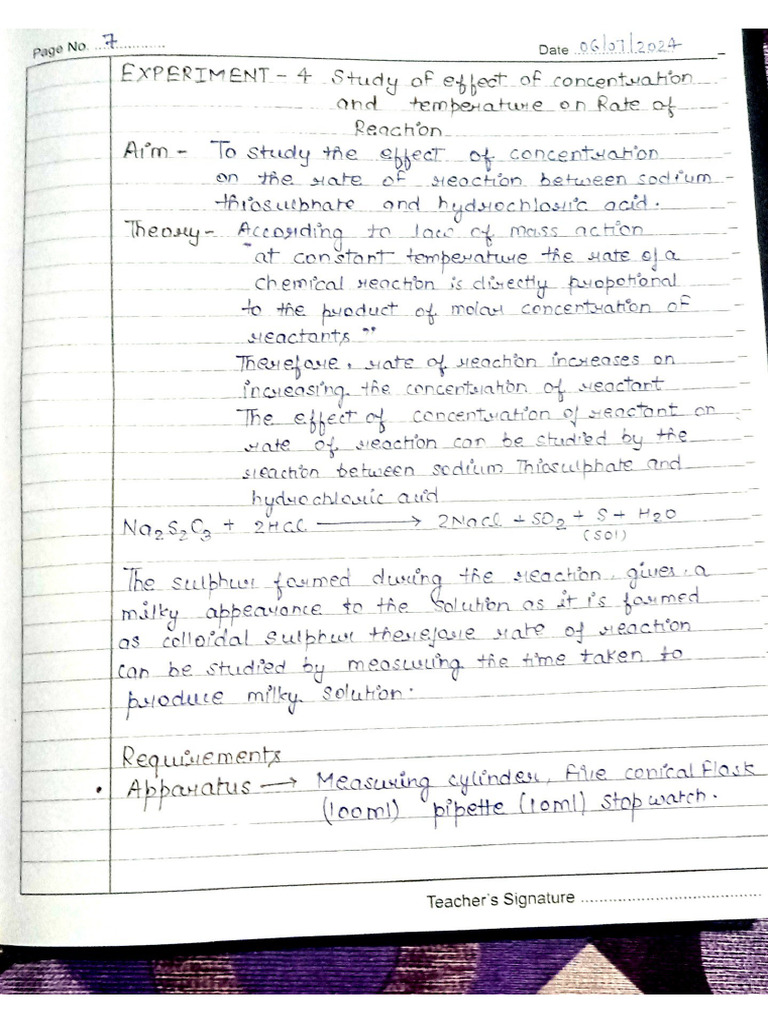 Page No. 7
Date 06/07/2024
EXPERIMENT - 4 Study of effect of concentration
and temperature on Rate of
Reaction
Aim - To study the effect of concentration
on the rate of reaction between sodium
thiosulphate and hydrochloric acid.
Theory - According to law of mass action
"at constant temperature the rate of a
chemical reaction is directly propotional
to the product of molar concentration of
reactants"
Therefore, rate of reaction increases on
increasing the concentration of reactant
The effect of concentration of reactant on
rate of reaction can be studied by the
reaction between sodium Thiosulphate and
hydrochloric acid
Na₂S₂O₃ + 2HCl ⟶ 2NaCl + SO₂ + S + H₂O
(sol)
The sulphur formed during the reaction, gives a
milky appearance to the solution as it is formed
as colloidal sulphur therefore rate of reaction
can be studied by measuring the time taken to
produce milky solution.
Requirements
• Apparatus → Measuring cylinder, five conical flask
(100ml) pipette (10ml) stop watch.
Teacher's Signature